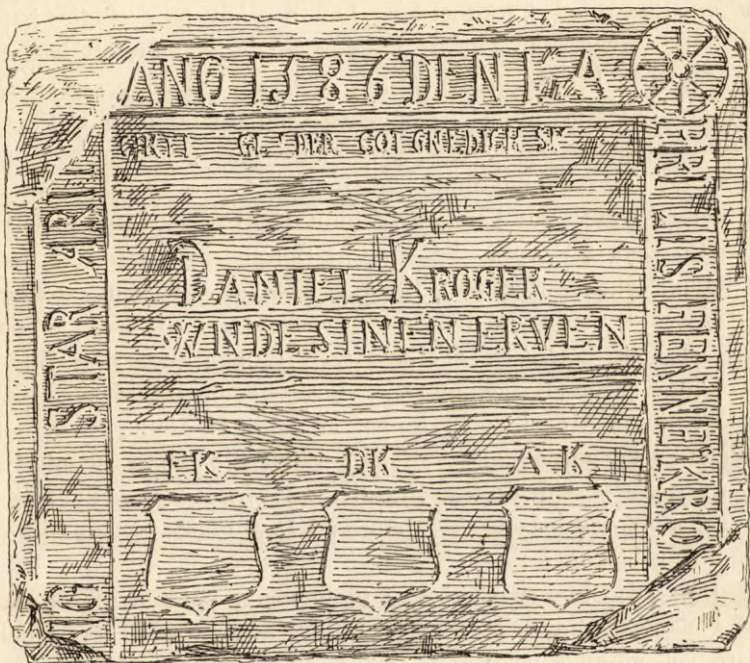 ANO 1586 DEN 1 A
PRILIS FENNE KRO
NO STAR
DER GOT GNEDICH SI
DANIEL KROGER
VNDE SINEN ERVEN
FK DK AK